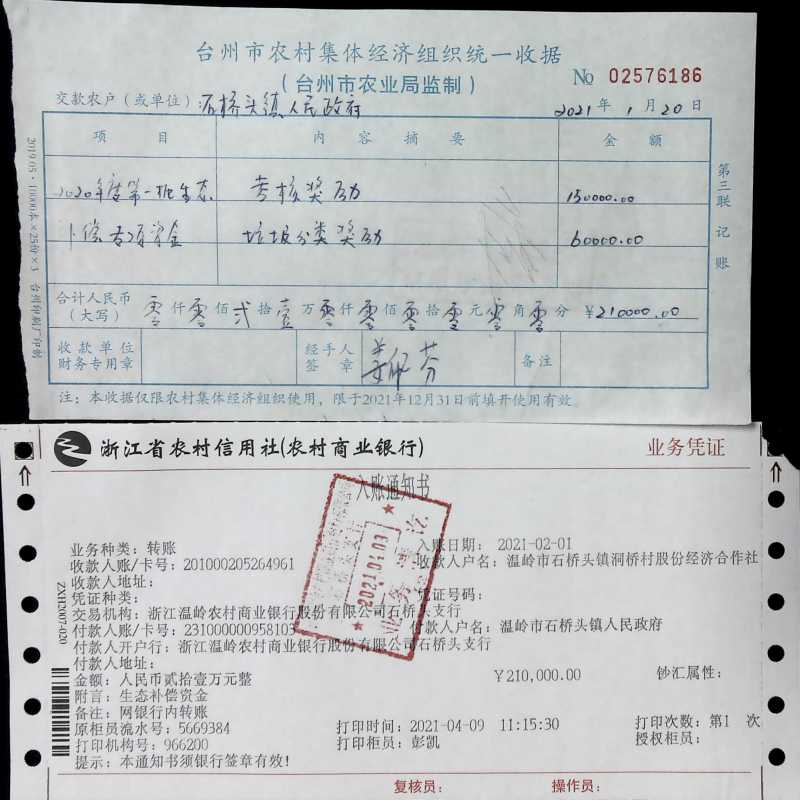 台州市农村集体经济组织统一收据
(台州市农业局监制)
№ 02576186
交款农户(或单位):石桥头镇人民政府 2021年1月20日
项目 内容摘要 金额
2020年度第一批生态 考核奖励 150000.00
补偿专项资金 垃圾分类奖励 60000.00
合计人民币(大写) 零仟零佰贰拾壹万零仟零佰零拾零元零角零分 ¥210000.00
收款单位财务专用章 经手人签章 备注
注:本收据仅限农村集体经济组织使用,限于2021年12月31日前填开使用有效。
第三联 记账
2019.05·10000本×25份×3 台州印刷厂印制
浙江省农村信用社(农村商业银行) 业务凭证
入账通知书
业务种类:转账 入账日期: 2021-02-01
收款人账/卡号:201000205264961 收款人户名:温岭市石桥头镇洞桥村股份经济合作社
收款人地址:
凭证种类: 凭证号码:
交易机构:浙江温岭农村商业银行股份有限公司石桥头支行
付款人账/卡号:231000000958103 付款人户名:温岭市石桥头镇人民政府
付款人开户行:浙江温岭农村商业银行股份有限公司石桥头支行
付款人地址:
金额:人民币贰拾壹万元整 ¥210,000.00 钞汇属性:
附言:生态补偿资金
备注:网银行内转账
原柜员流水号:5669384 打印时间:2021-04-09 11:15:30 打印次数:第1 次
打印机构号:966200 打印柜员:彭凯 授权柜员:
提示:本通知书须银行签章有效!
复核员: 操作员:
ZXHJ2007-020